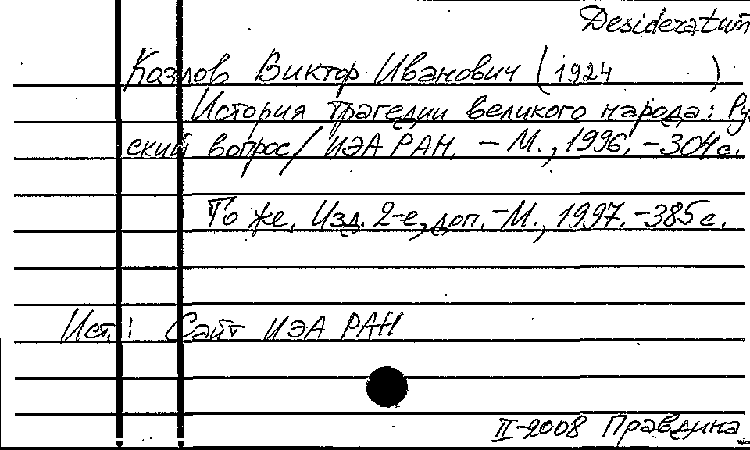 Desideratum
Козлов Виктор Иванович (1924 )
История трагедии великого народа: Рус
ский вопрос / ИЭА РАН. - М., 1996. - 304 с.
То же. Изд. 2-е, доп. - М., 1997. - 385 с.
Ист.: Сайт ИЭА РАН
II-2008 Правдина